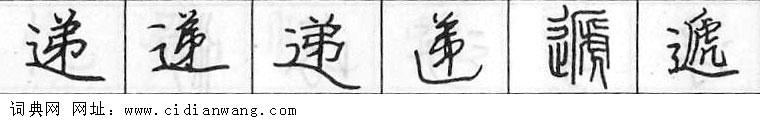 递 递 递 递 遞 遞
词典网 网址：www.cidianwang.com